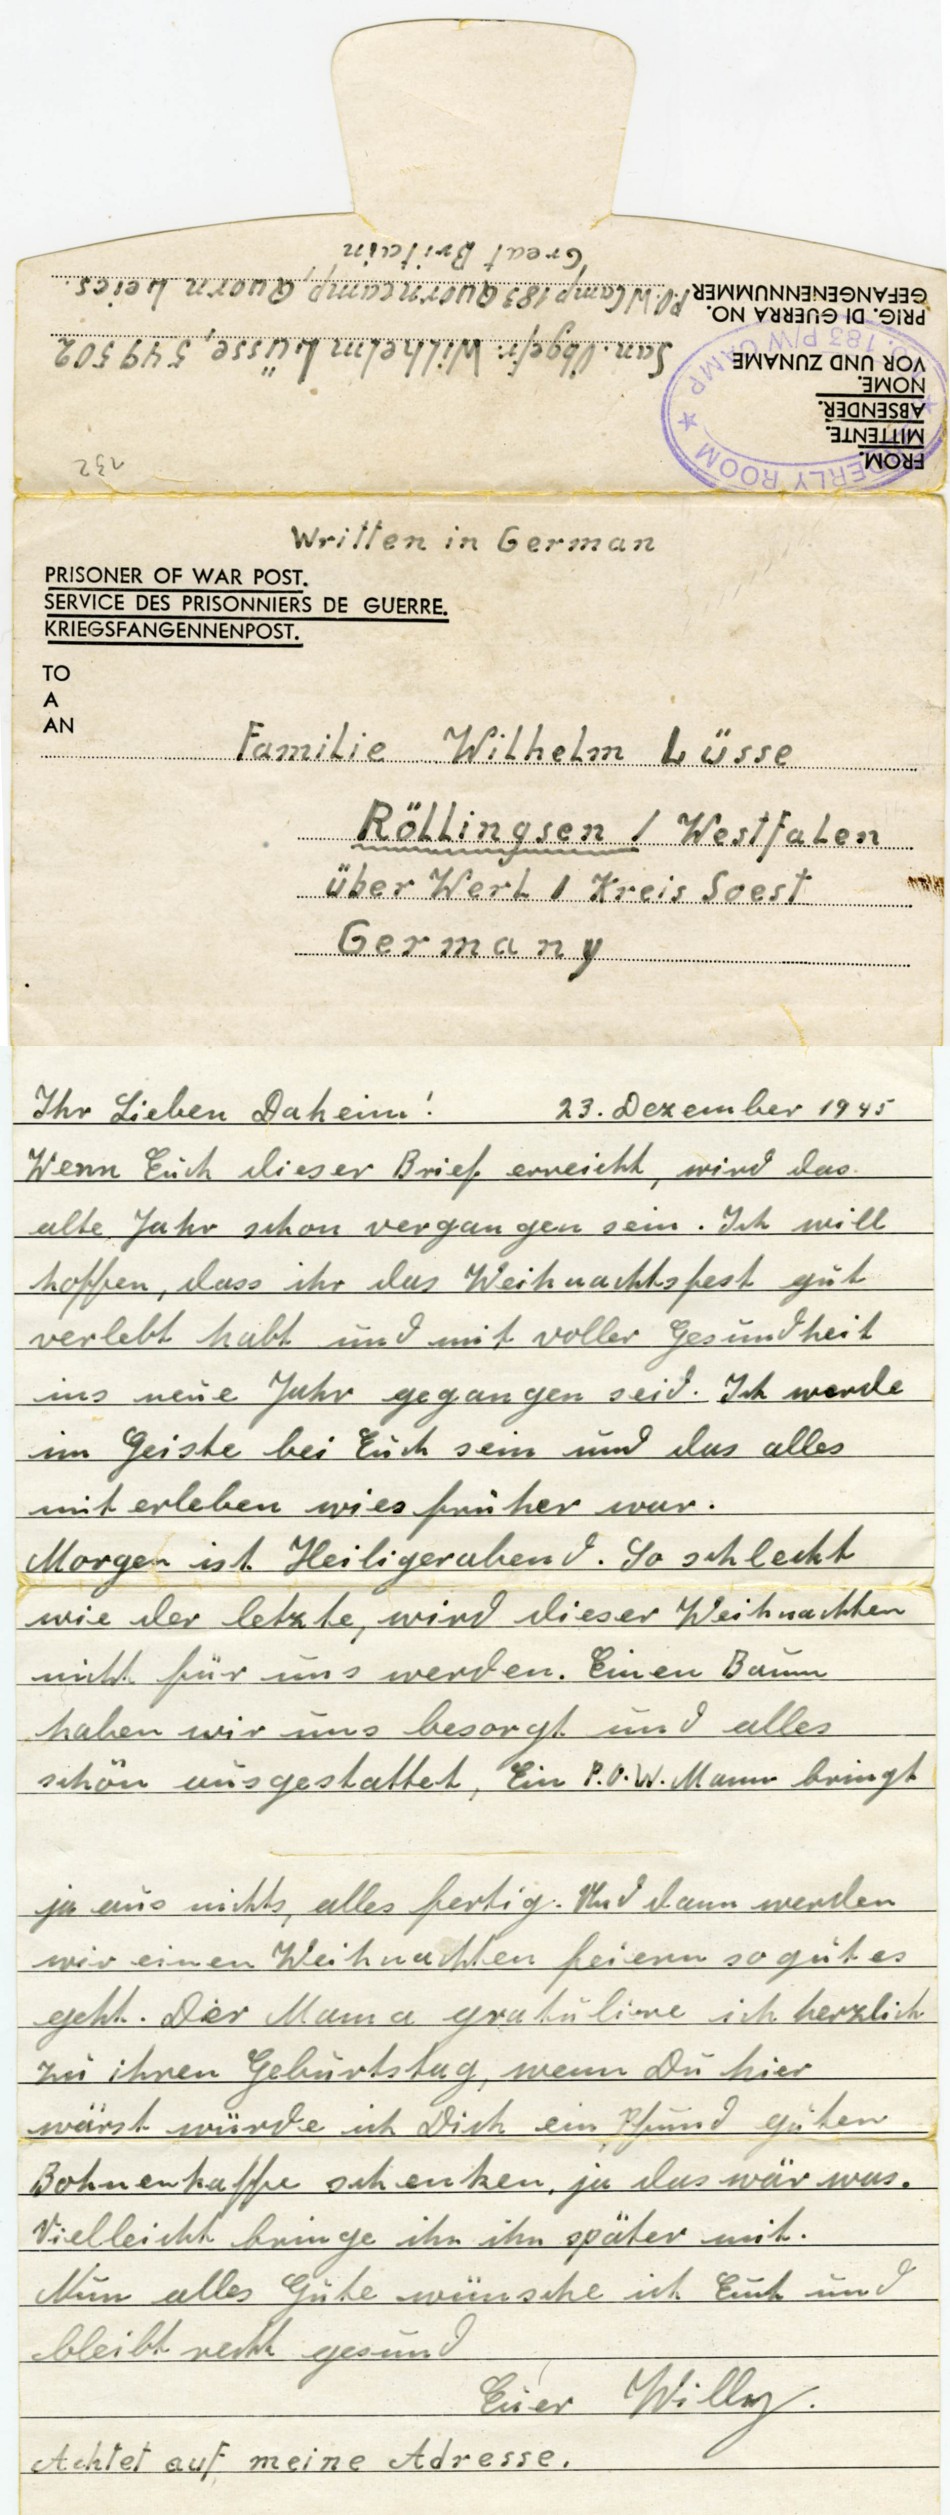 Great Britain
P.O.W Camp 183 Quorncamp, Quorn Leics.
GEFANGENENNUMMER
PRIG. DI GUERRA NO.
San. Obgefr. Wilhelm Lüsse, 549502
VOR UND ZUNAME
NOME.
ABSENDER.
MITTENTE.
FROM.
183 P/W CAMP
ORDERLY ROOM
232
Written in German
PRISONER OF WAR POST.
SERVICE DES PRISONNIERS DE GUERRE.
KRIEGSFANGENNENPOST.
TO
A
AN
Familie Wilhelm Lüsse
Röllingsen / Westfalen
über Werl / Kreis Soest
Germany
Ihr Lieben Daheim! 23. Dezember 1945
Wenn Euch dieser Brief erreicht, wird das
alte Jahr schon vergangen sein. Ich will
hoffen, dass ihr das Weihnachtsfest gut
verlebt habt und mit voller Gesundheit
ins neue Jahr gegangen seid. Ich werde
im Geiste bei Euch sein und das alles
mit erleben wies früher war.
Morgen ist Heiligerabend. So schlecht
wie der letzte, wird dieser Weihnachten
nicht für uns werden. Einen Baum
haben wir uns besorgt und alles
schön ausgestattet, Ein P.O.W. Mann bringt
ja aus nichts, alles fertig. Und dann werden
wir einen Weihnachten feiern so gut es
geht. Der Mama gratuliere ich herzlich
zu ihren Geburtstag, wenn Du hier
wärst würde ich Dich ein Pfund guten
Bohnenkaffe schenken, ja das wär was.
Vielleicht bringe ihn ihn später mit.
Nun alles Gute wünsche ich Euch und
bleibt recht gesund
Euer Willy.
Achtet auf meine Adresse.